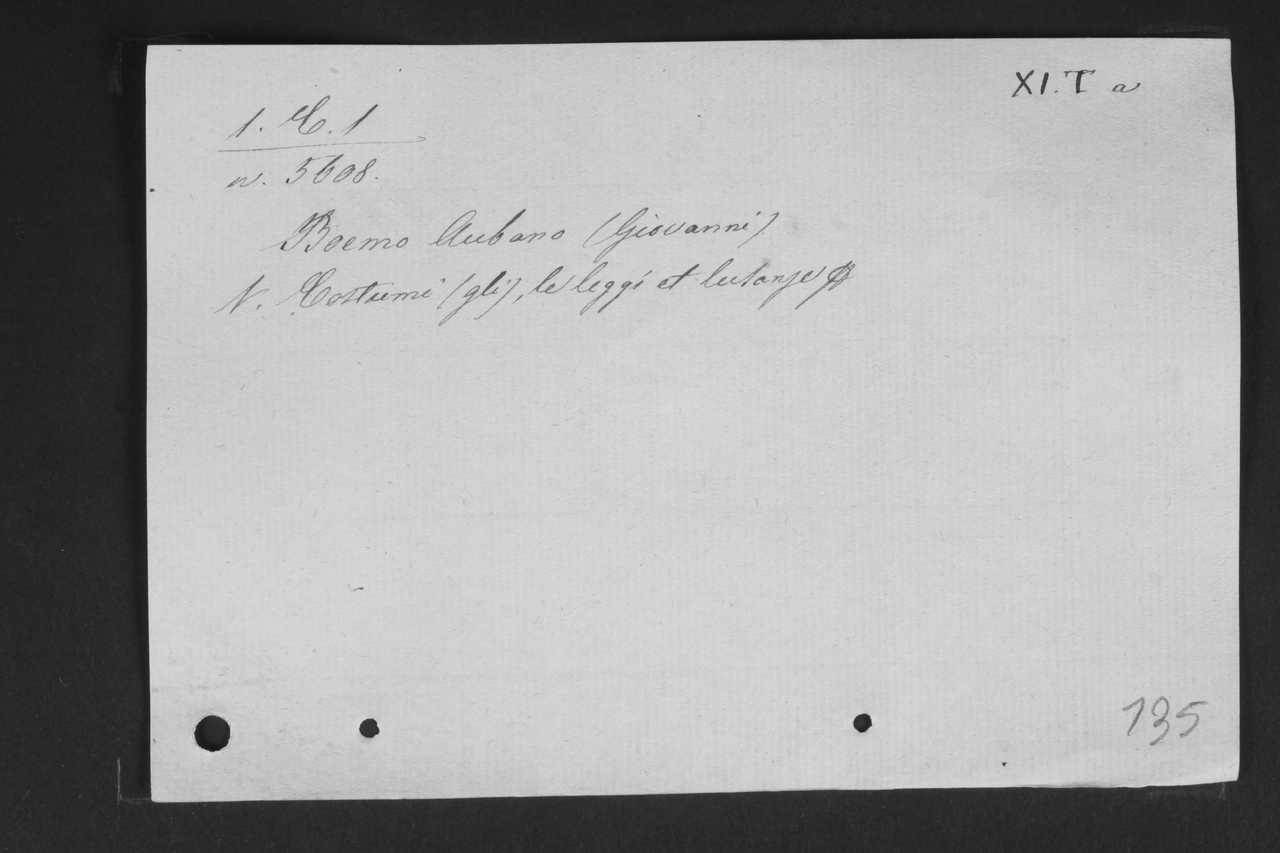 XI. T a
1. C. 1
n. 5608.
Boemo Aubano (Giovanni)
V. Costumi (gli), le leggi et l'usanze
135